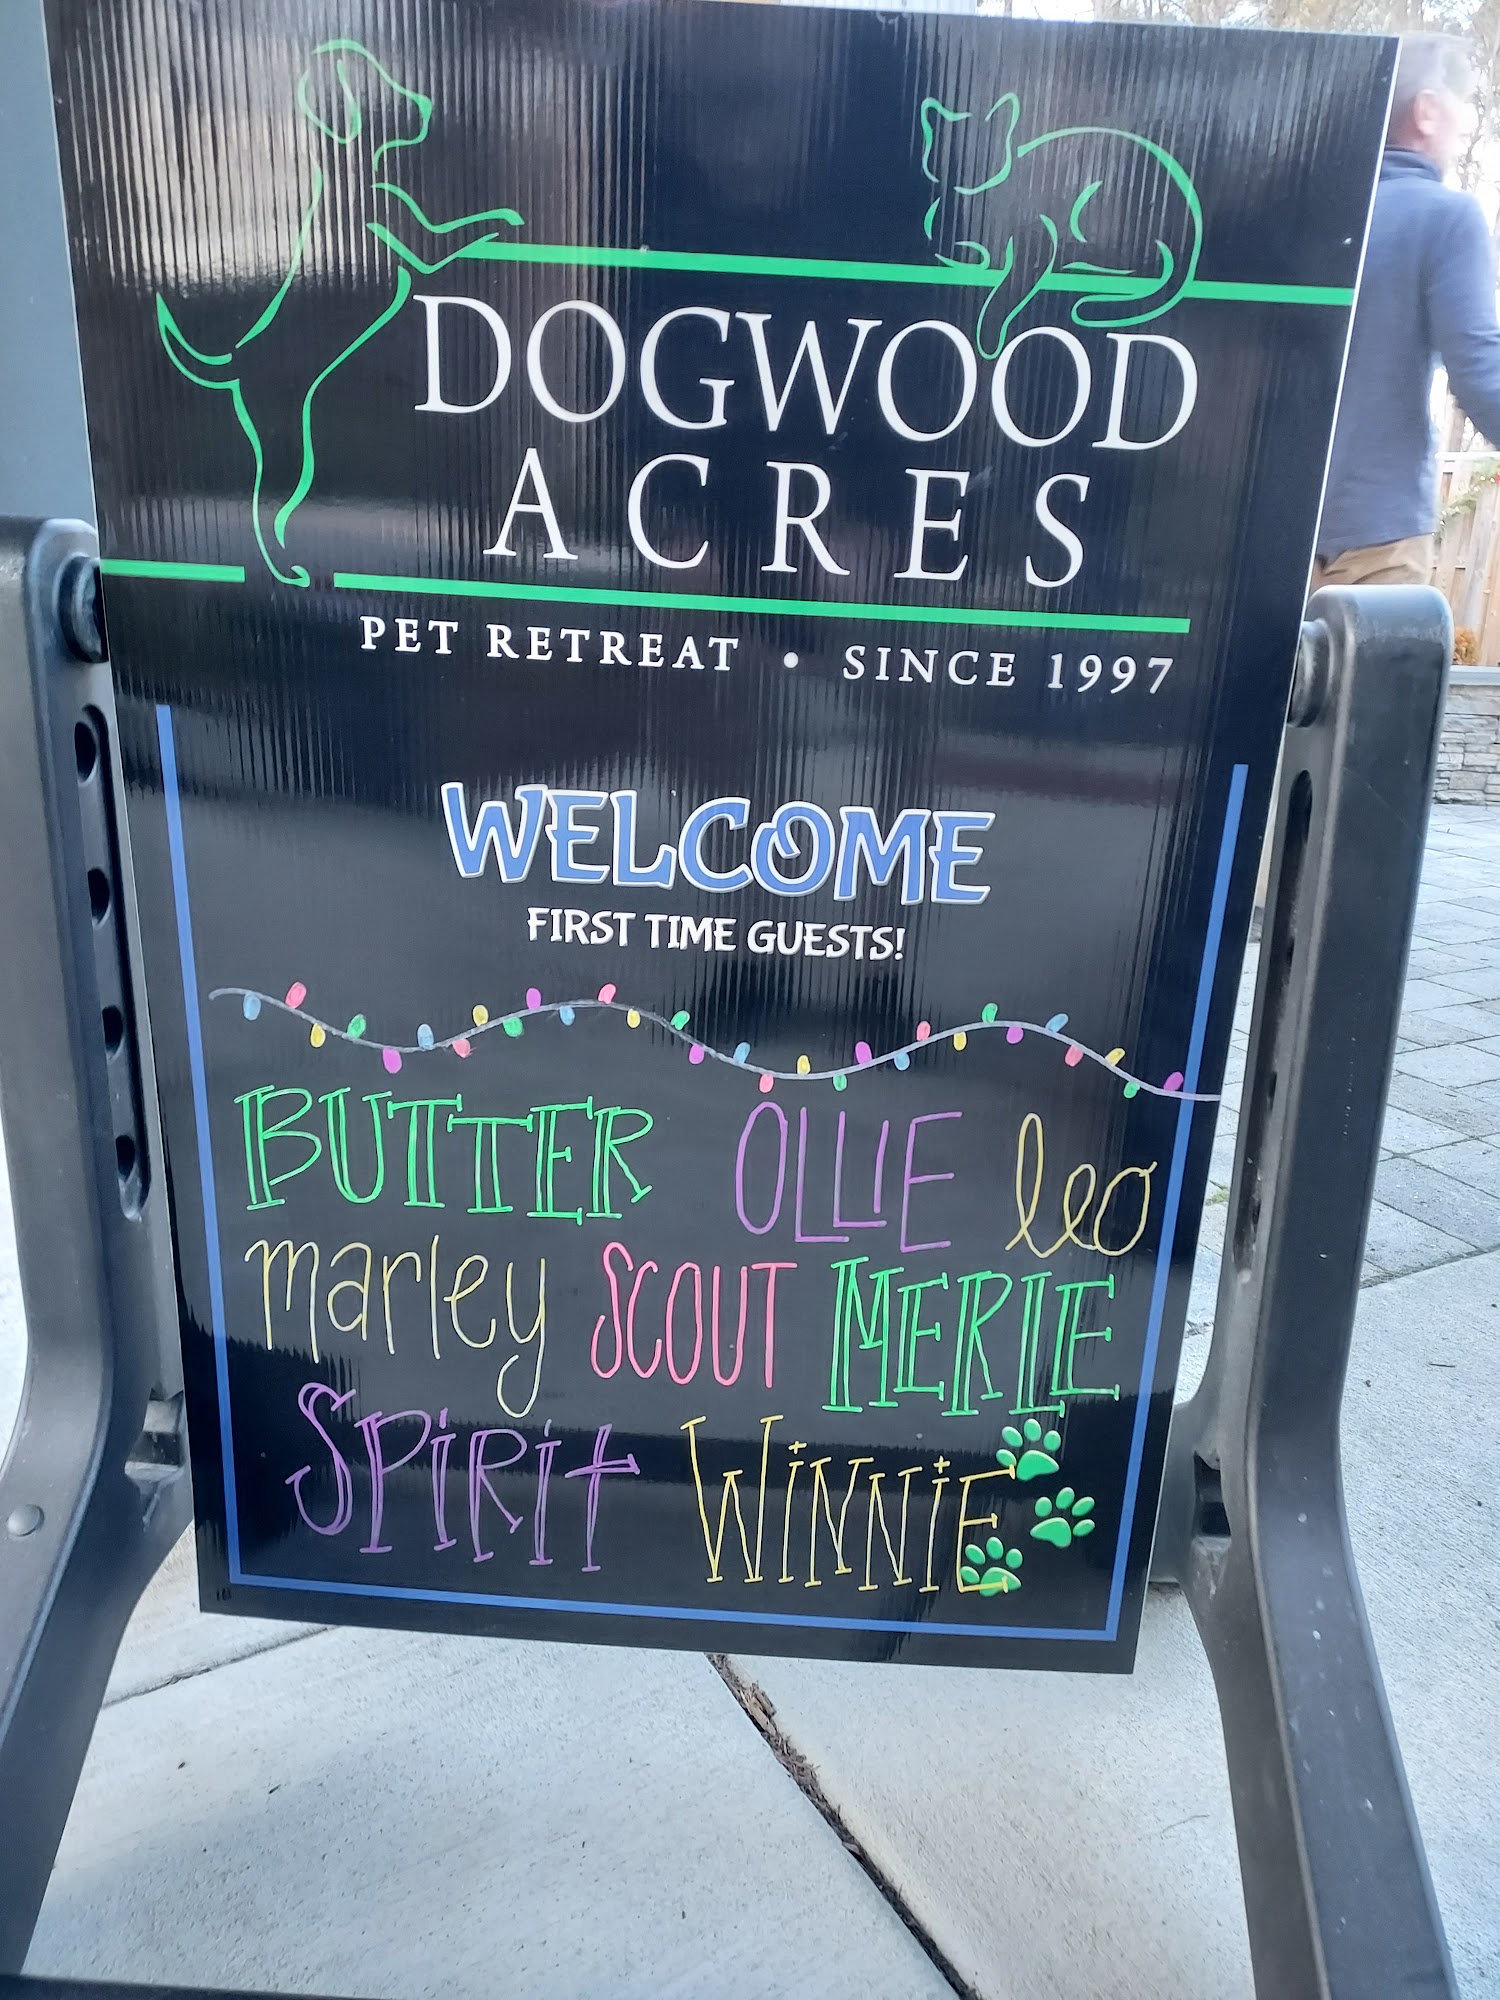 DOGWOOD
ACRES
PET RETREAT • SINCE 1997
WELCOME
FIRST TIME GUESTS!
BUTTER OLLIE leo
marley SCOUT MERLE
SPiRit WiNNiE